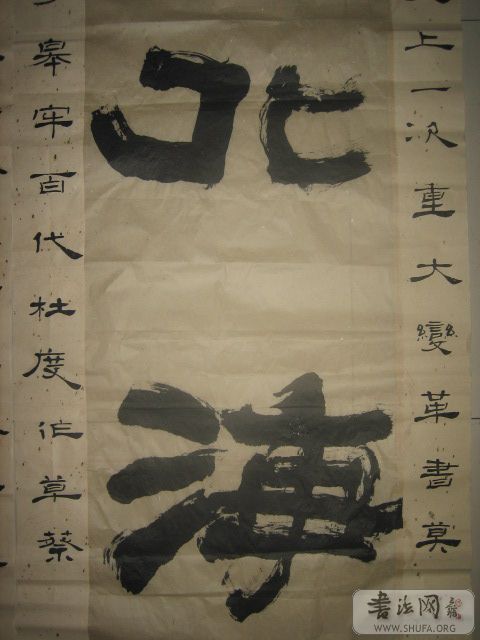 上一次重大變革書莫
北海
皋牢百代杜度作草蔡
書法网
WWW.SHUFA.ORG